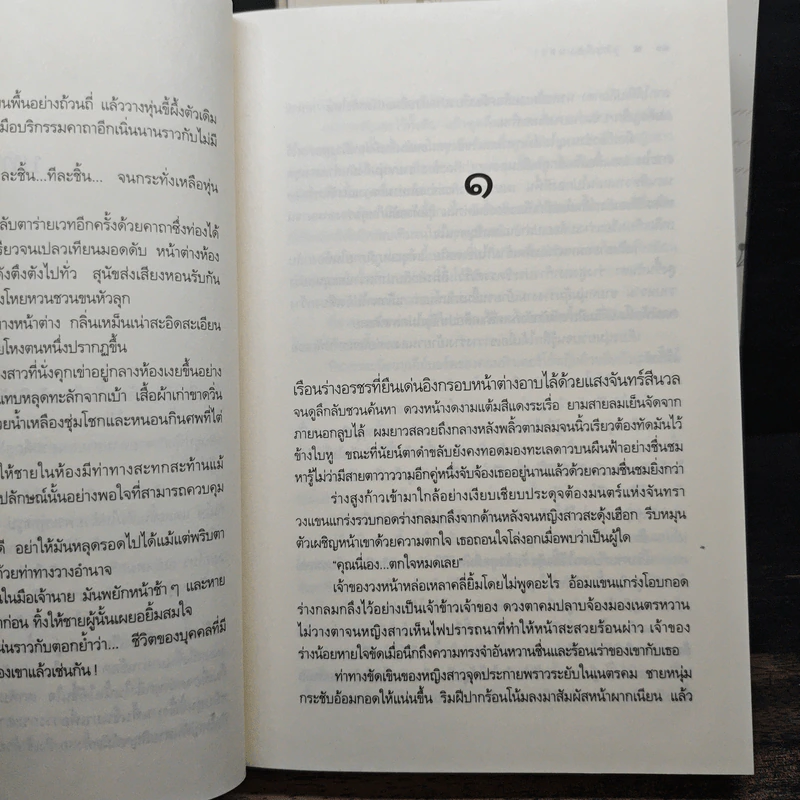 นพื้นอย่างถ้วนถี่ แล้ววางหุ่นขี้ผึ้งตัวเดิม
มือบริกรรมคาถาอีกเนิ่นนานราวกับไม่มี
ละชิ้น...ทีละชิ้น... จนกระทั่งเหลือหุ่น
ลับตาร่ายเวทอีกครั้งด้วยคาถาซึ่งท่องได้
รียวจนเปลวเทียนมอดดับ หน้าต่างห้อง
ดังตึงตังไปทั่ว สุนัขส่งเสียงหอนรับกัน
งโหยหวนชวนขนหัวลุก
างหน้าต่าง กลิ่นเหม็นเน่าสะอิดสะเอียน
ยโหงตนหนึ่งปรากฏขึ้น
งสาวที่นั่งคุกเข่าอยู่กลางห้องเงยขึ้นอย่าง
แทบหลุดทะลักจากเบ้า เสื้อผ้าเก่าขาดวิ่น
วยน้ำเหลืองชุ่มโชกและหนอนกินศพที่ไต่
ให้ชายในห้องมีท่าทางสะทกสะท้านแม้
ปลักษณ์นั้นอย่างพอใจที่สามารถควบคุม
ดี อย่าให้มันหลุดรอดไปได้แม้แต่พริบตา
ด้วยท่าทางวางอำนาจ
นในมือเจ้านาย มันพยักหน้าช้าๆ และหาย
าก่อน ทิ้งให้ชายผู้นั้นเผยอยิ้มสมใจ
น่นราวกับตอกย้ำว่า... ชีวิตของบุคคลที่มี
องเขาแล้วเช่นกัน!
๑
เรือนร่างอรชรที่ยืนเด่นอิงกรอบหน้าต่างอาบไล้ด้วยแสงจันทร์สีนวล
จนดูลึกลับชวนค้นหา ดวงหน้างดงามแต้มสีแดงระเรื่อ ยามสายลมเย็นจัดจาก
ภายนอกลูบไล้ ผมยาวสลวยถึงกลางหลังพลิ้วตามลมจนนิ้วเรียวต้องทัดมันไว้
ข้างใบหู ขณะที่นัยน์ตาดำขลับยังคงทอดมองทะเลดาวบนผืนฟ้าอย่างชื่นชม
หารู้ไม่ว่ามีสายตาวาววามอีกคู่หนึ่งจับจ้องเธออยู่นานแล้วด้วยความชื่นชมยิ่งกว่า
ร่างสูงก้าวเข้ามาใกล้อย่างเงียบเชียบประดุจต้องมนตร์แห่งจันทรา
วงแขนแกร่งรวบกอดร่างกลมกลึงจากด้านหลังจนหญิงสาวสะดุ้งเฮือก รีบหมุน
ตัวเผชิญหน้าเขาด้วยความตกใจ เธอถอนใจโล่งอกเมื่อพบว่าเป็นผู้ใด
“คุณนี่เอง...ตกใจหมดเลย”
เจ้าของวงหน้าหล่อเหลาคลี่ยิ้มโดยไม่พูดอะไร อ้อมแขนแกร่งโอบกอด
ร่างกลมกลึงไว้อย่างเป็นเจ้าข้าวเจ้าของ ดวงตาคมปลาบจ้องมองเนตรหวาน
ไม่วางตาจนหญิงสาวเห็นไฟปรารถนาที่ทำให้หน้าสะสวยร้อนผ่าว เจ้าของ
ร่างน้อยหายใจขัดเมื่อนึกถึงความทรงจำอันหวานชื่นและร้อนเร่าของเขากับเธอ
ท่าทางขัดเขินของหญิงสาวจุดประกายพราวระยับในเนตรคม ชายหนุ่ม
กระชับอ้อมกอดให้แน่นขึ้น ริมฝีปากร้อนโน้มลงมาสัมผัสหน้าผากเนียน แล้ว